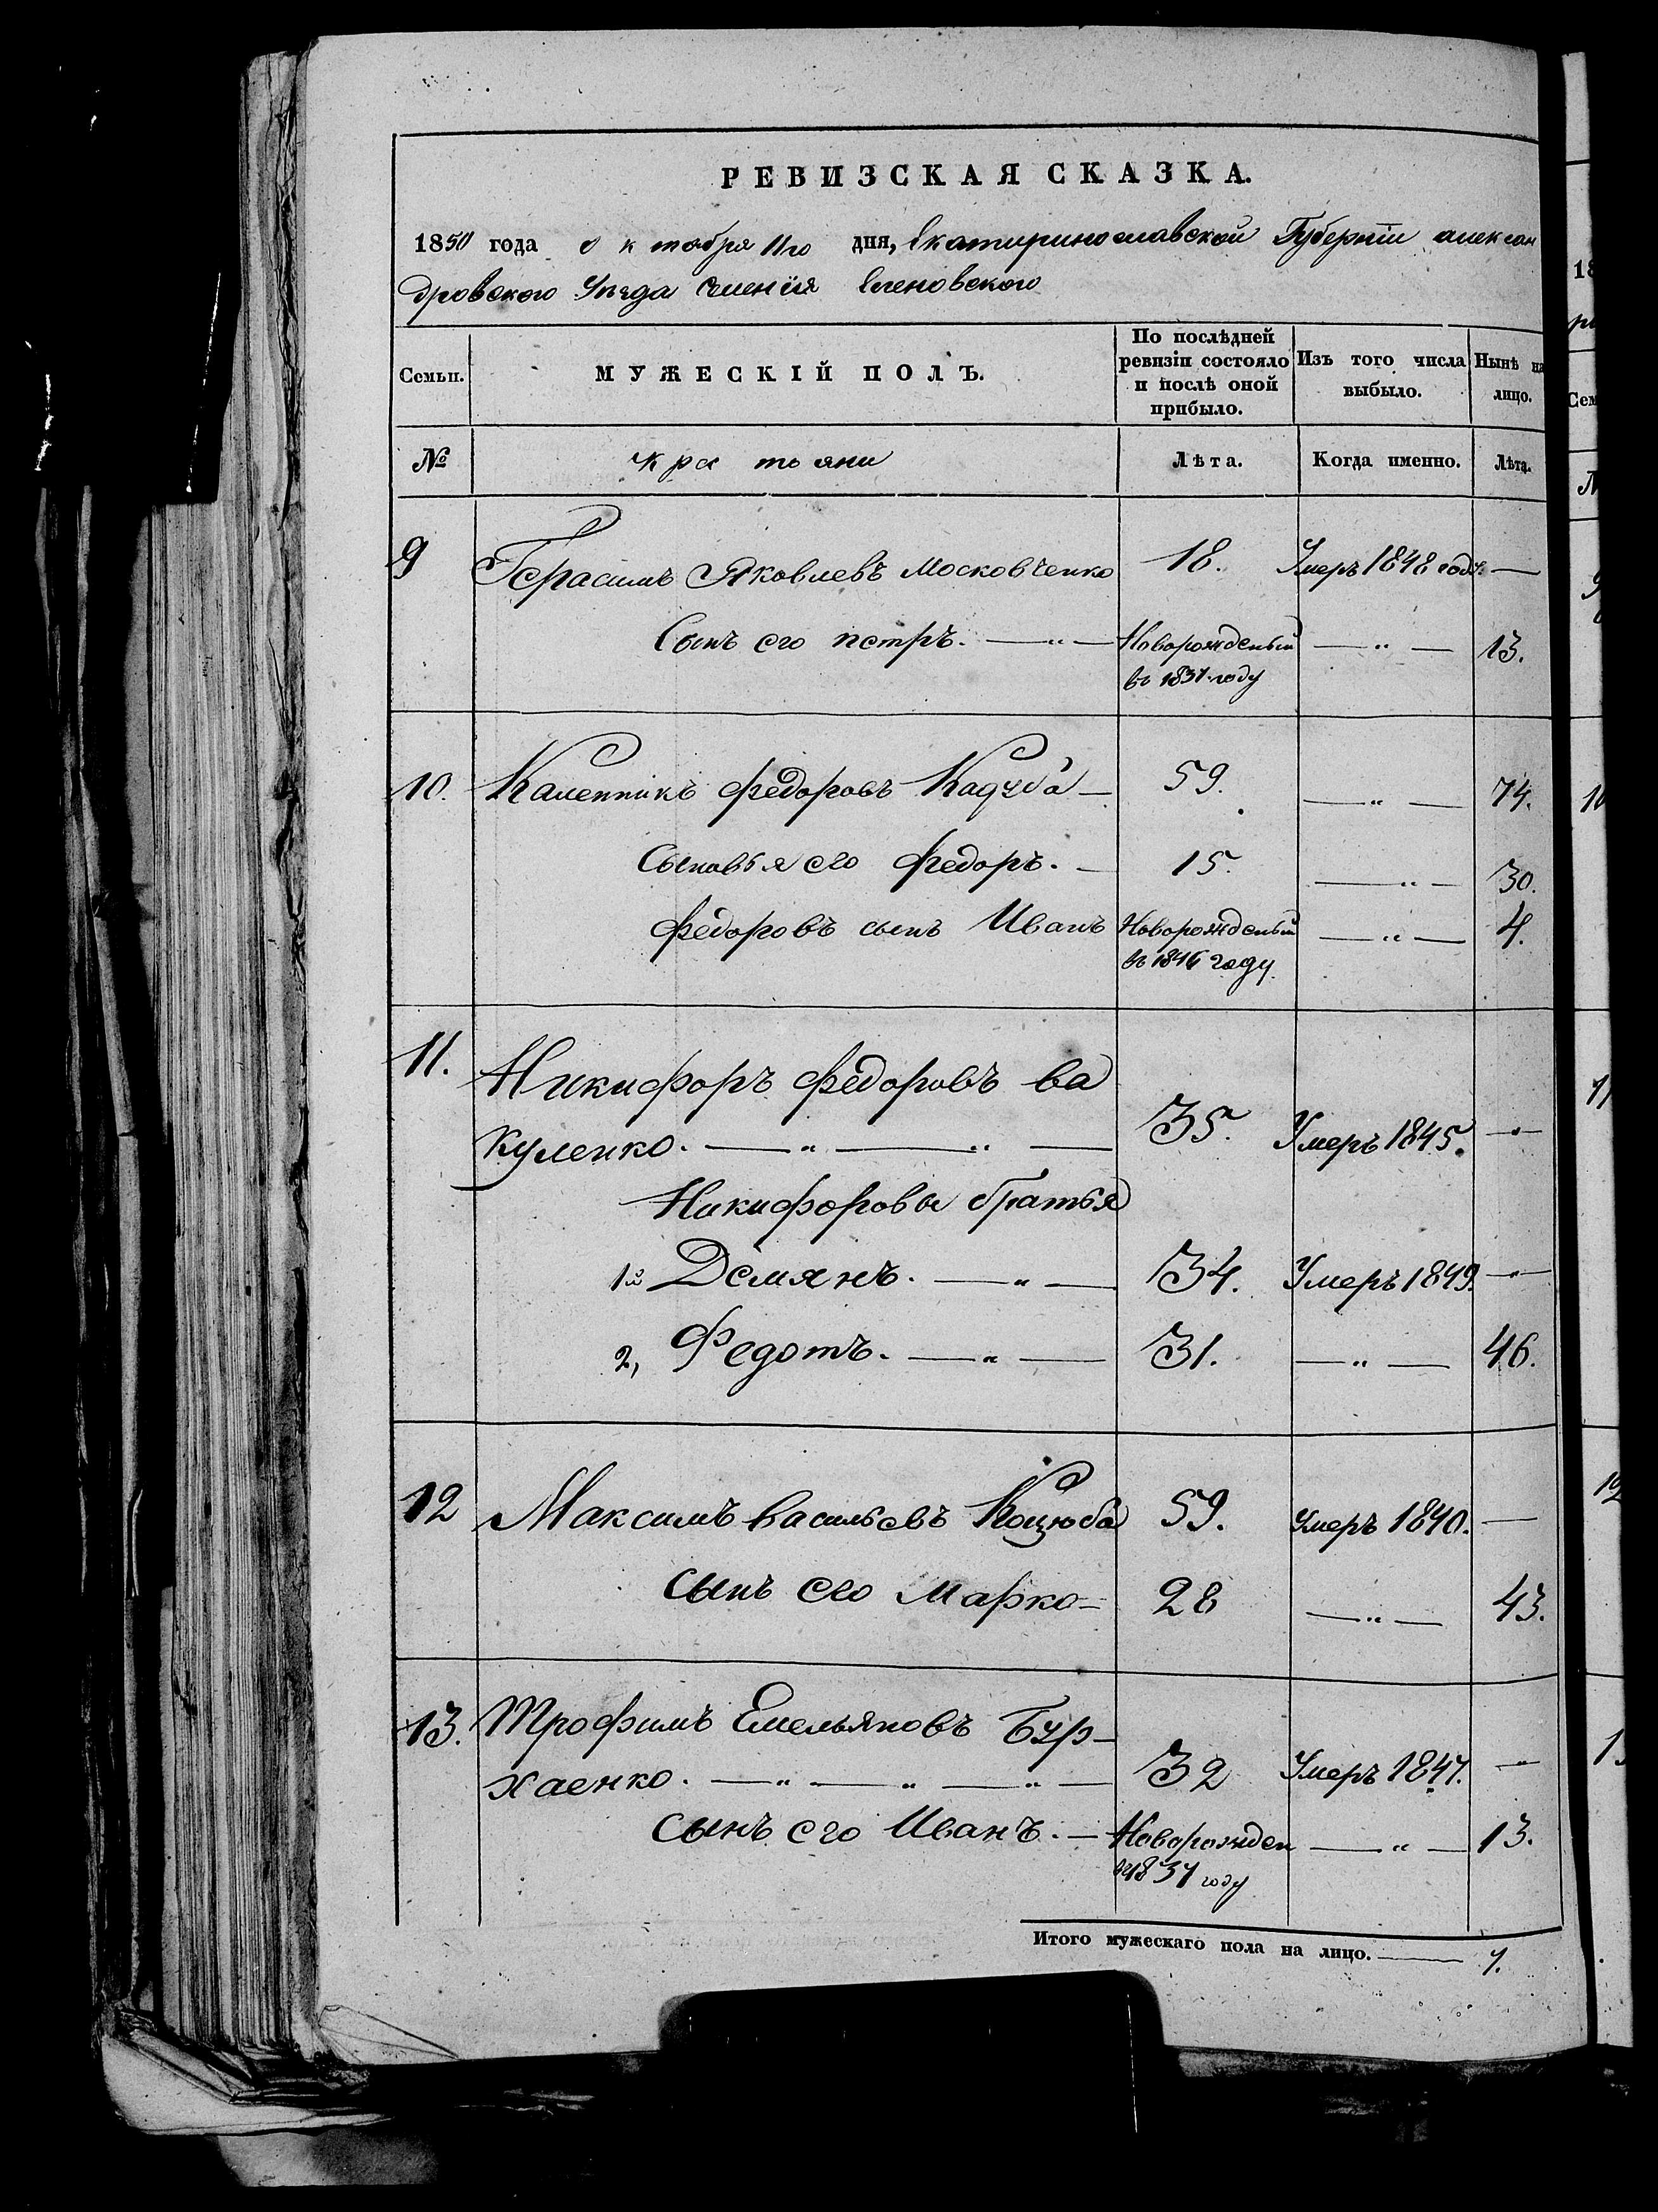 РЕВИЗСКАЯ СКАЗКА.
1850 года октября 11го дня, Екатеринославской Губернiи алексан
дровского Уѣзда Еленовского
Семьи. МУЖЕСКІЙ ПОЛЪ. По послѣдней ревизіи состояло и послѣ оной прибыло. Изъ того числа выбыло. Нынѣ на лицо.
№ Крестьяни Лѣта. Когда именно. Лѣта.
9 Герасимъ Яковлевъ Московченко 18. Умеръ 1848 году —
Сынъ его петръ. — „ — Новорожденый — „ — 13.
въ 1837 году
10. Каленникъ федоровъ Кадуба — 59. — „ — 74.
Сыновья его федоръ. — 15. — „ — 30.
федоровъ сынъ Иванъ Новорожденый — „ — 4.
въ 1846 году
11. Никифоръ федоровъ ва
куленко. — „ — „ — 35. Умеръ 1845. — „ —
Никифоровы братья
1й Демянъ. — „ — 34. Умеръ 1849. — „ —
2, Федотъ. — „ — 31. — „ — 46.
12 Максимъ васильевъ Коцюба 59. Умеръ 1840. —
сынъ его Марко — 28 — „ — 43.
13. Трофимъ Емельяновъ Бур-
хаенко. — „ — „ — „ — 32 Умеръ 1847. — „
сынъ его Иванъ. — Новорожден — „ — 13.
в 1837 году
Итого мужескаго пола на лицо. — 7.